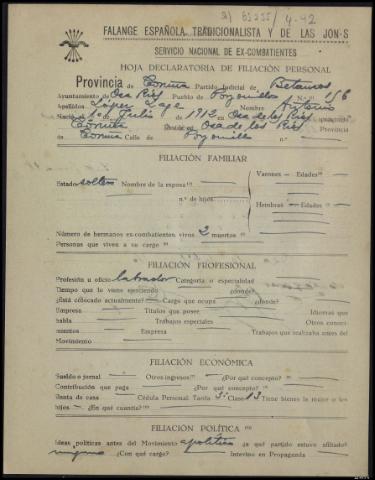 a) 65255/4-42
FALANGE ESPAÑOLA TRADICIONALISTA Y DE LAS JON-S
SERVICIO NACIONAL DE EX-COMBATIENTES
HOJA DECLARATORIA DE FILIACIÓN PERSONAL
Provincia de Coruña Partido Judicial de Betanzos
Ayuntamiento de Oza Ríos Pueblo de N.º 156
Apellidos López Lage Nombre Antonio
Nació el 1º de Julio de 1912 en Oza de los Ríos
Coruña en Oza de los Ríos Provincia
de Coruña Calle de n.º —
FILIACIÓN FAMILIAR
Estado soltero Nombre de la esposa — Varones — Edades —
n.º de hijos
Hembras — Edades —
Número de hermanos ex-combatientes vivos 2 muertos —
Personas que viven a su cargo —
FILIACIÓN PROFESIONAL
Profesión u oficio labrador Categoría o especialidad —
Tiempo que lo viene ejerciendo — dónde —
¿Está colocado actualmente? — Cargo que ocupa — ¿dónde? —
Empresa — Títulos que posee — Idiomas que
habla — Trabajos especiales — Otros conoci-
mientos — Empresa — Trabajos que realizaba antes del
Movimiento —
FILIACIÓN ECONÓMICA
Sueldo o jornal — Otros ingresos? — ¿Por qué concepto? —
Contribución que paga — ¿Por qué concepto? —
Renta de casa — Cédula Personal Tarifa 3ª Clase 13 Tiene bienes la mujer o los
hijos — ¿En qué cuantía? —
FILIACIÓN POLÍTICA
Ideas políticas antes del Movimiento apolítico ¿a qué partido estuvo afiliado?
ninguno ¿Con qué cargo? — Intervino en Propaganda —